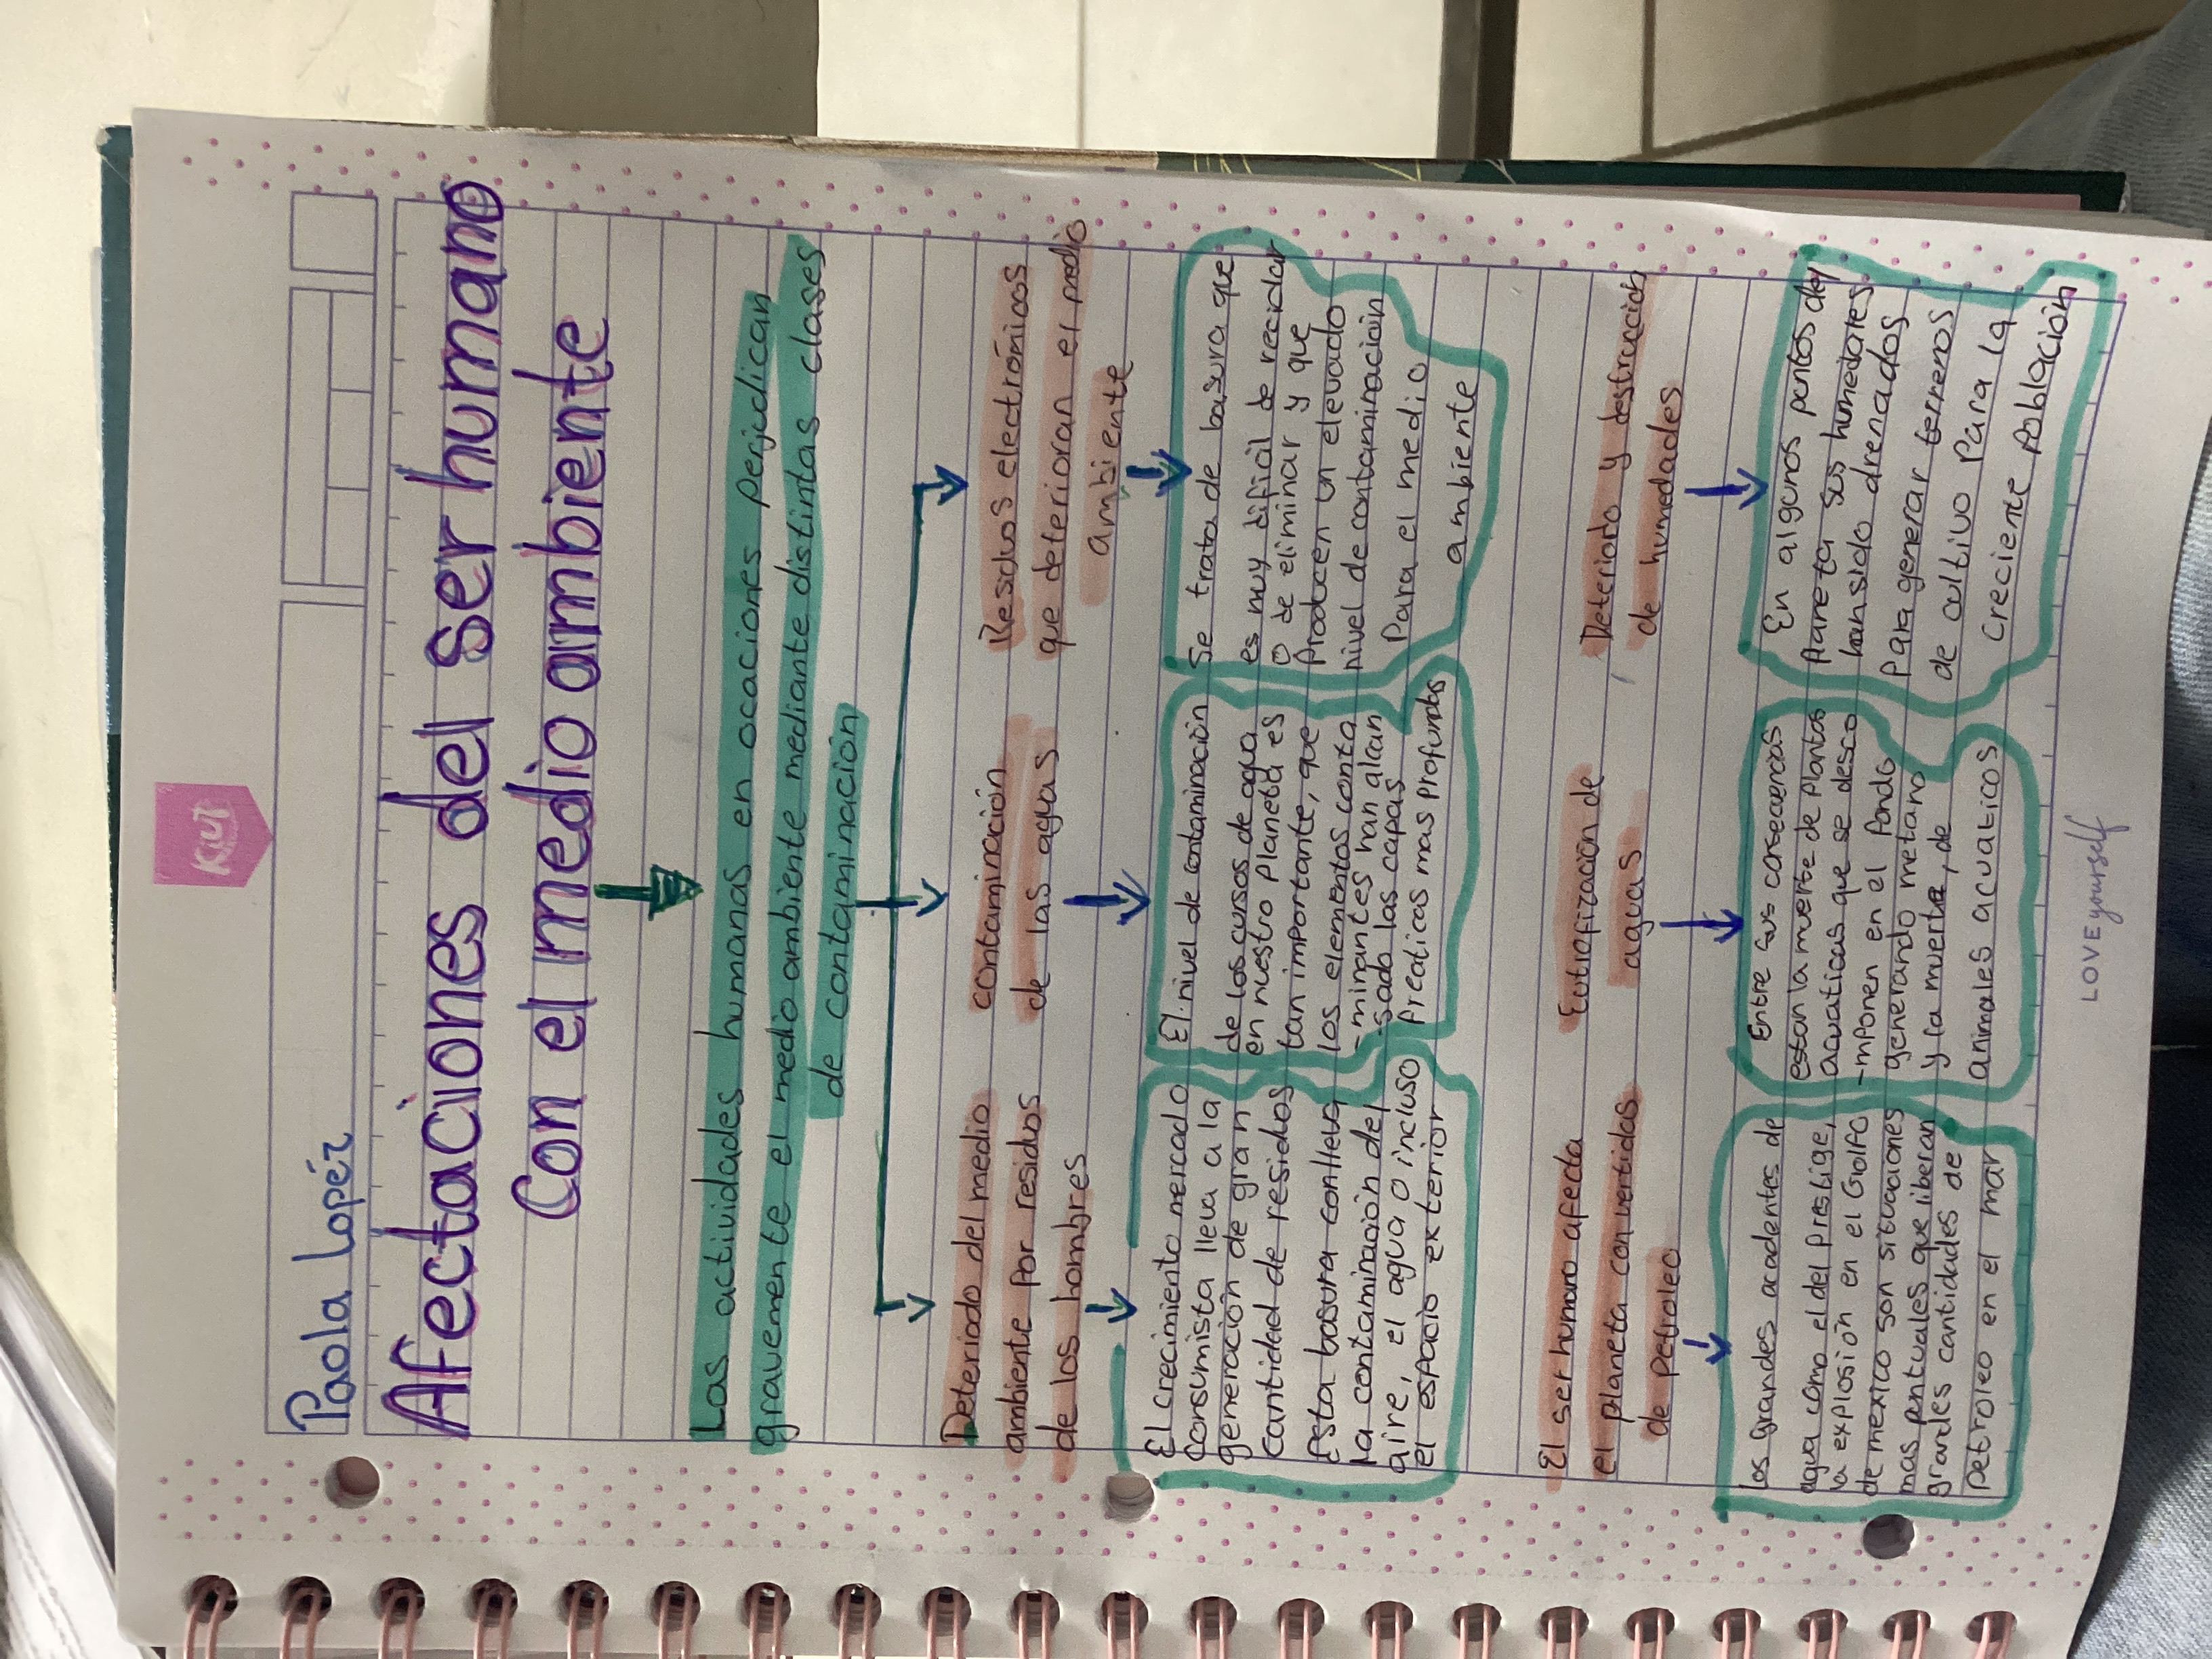 Kiut
Paola Lopéz
Afectaciones del ser humano
Con el medio ambiente
Las actividades humanas en ocaciones perjudican
gravemente el medio ambiente mediante distintas clases
de contaminación
Deteriodo del medio
ambiente por residos
de los hombres
El crecimiento mercado
consumista lleva a la
generación de gran
cantidad de residuos
esta basura conlleva
la contaminación del
aire, el agua o incluso
el espacio exterior
contaminación
de las aguas
El nivel de contaminación
de los cursos de agua
en nuestro planeta es
tan importante, que
los elementos conta
-minantes han alcan
-sado las capas
freaticas mas profundas
Residuos electrónicos
que deterioran el medio
ambiente
Se trata de basura que
es muy dificil de reciclar
o de eliminar y que
Producen un elevado
nivel de contaminacion
Para el medio
ambiente
El ser humano afecta
el planeta con vertidos
de petroleo
Los grandes accidentes de
agua como el del prestige,
la explosión en el Golfo
de mexico son situaciones
mas puntuales que liberan
grandes cantidades de
petroleo en el mar
Eutiofización de
aguas
Entre sus consecuencias
estan la muerte de plantas
acuaticas que se desco
-mponen en el fondo
generando metano
y la muerte, de
animales acuaticos
Deteriodo y destruccion
de humedades
En algunos puntos del
Planeta sus humedares
han sido drenados
Para generar terrenos
de cultivo Para la
Creciente Poblacion
LOVE yourself